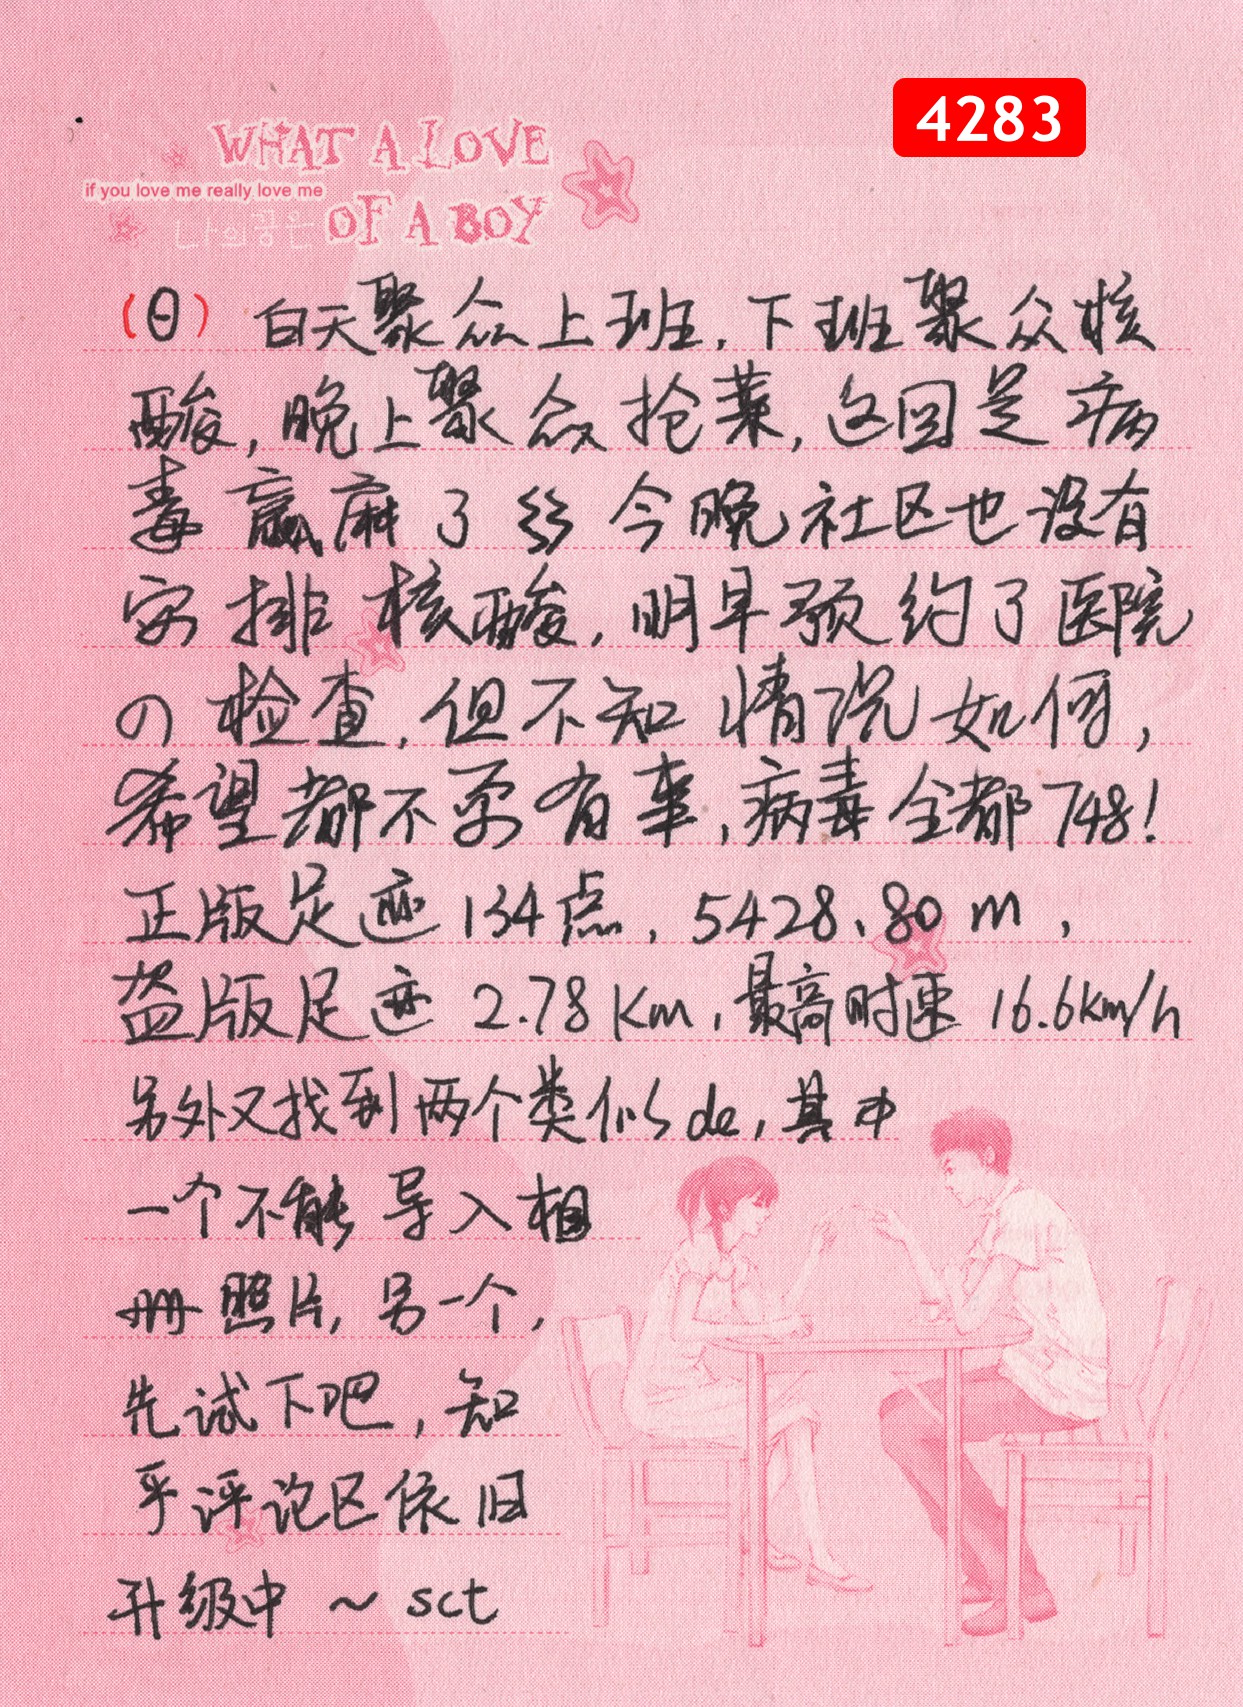 4283
WHAT A LOVE
if you love me really love me
나의꿈은 OF A BOY
(日) 白天聚众上班，下班聚众核
酸，晚上聚众抢菜，这回是病
毒赢麻了 今晚社区也没有
安排核酸，明早预约了医院
の检查，但不知情况如何，
希望都不要有事，病毒全都748！
正版足迹134点，5428.80m，
盗版足迹2.78Km，最高时速16.6km/h
另外又找到两个类似de，其中
一个不能导入相
册照片，另一个，
先试下吧，知
乎评论区依旧
升级中～sct